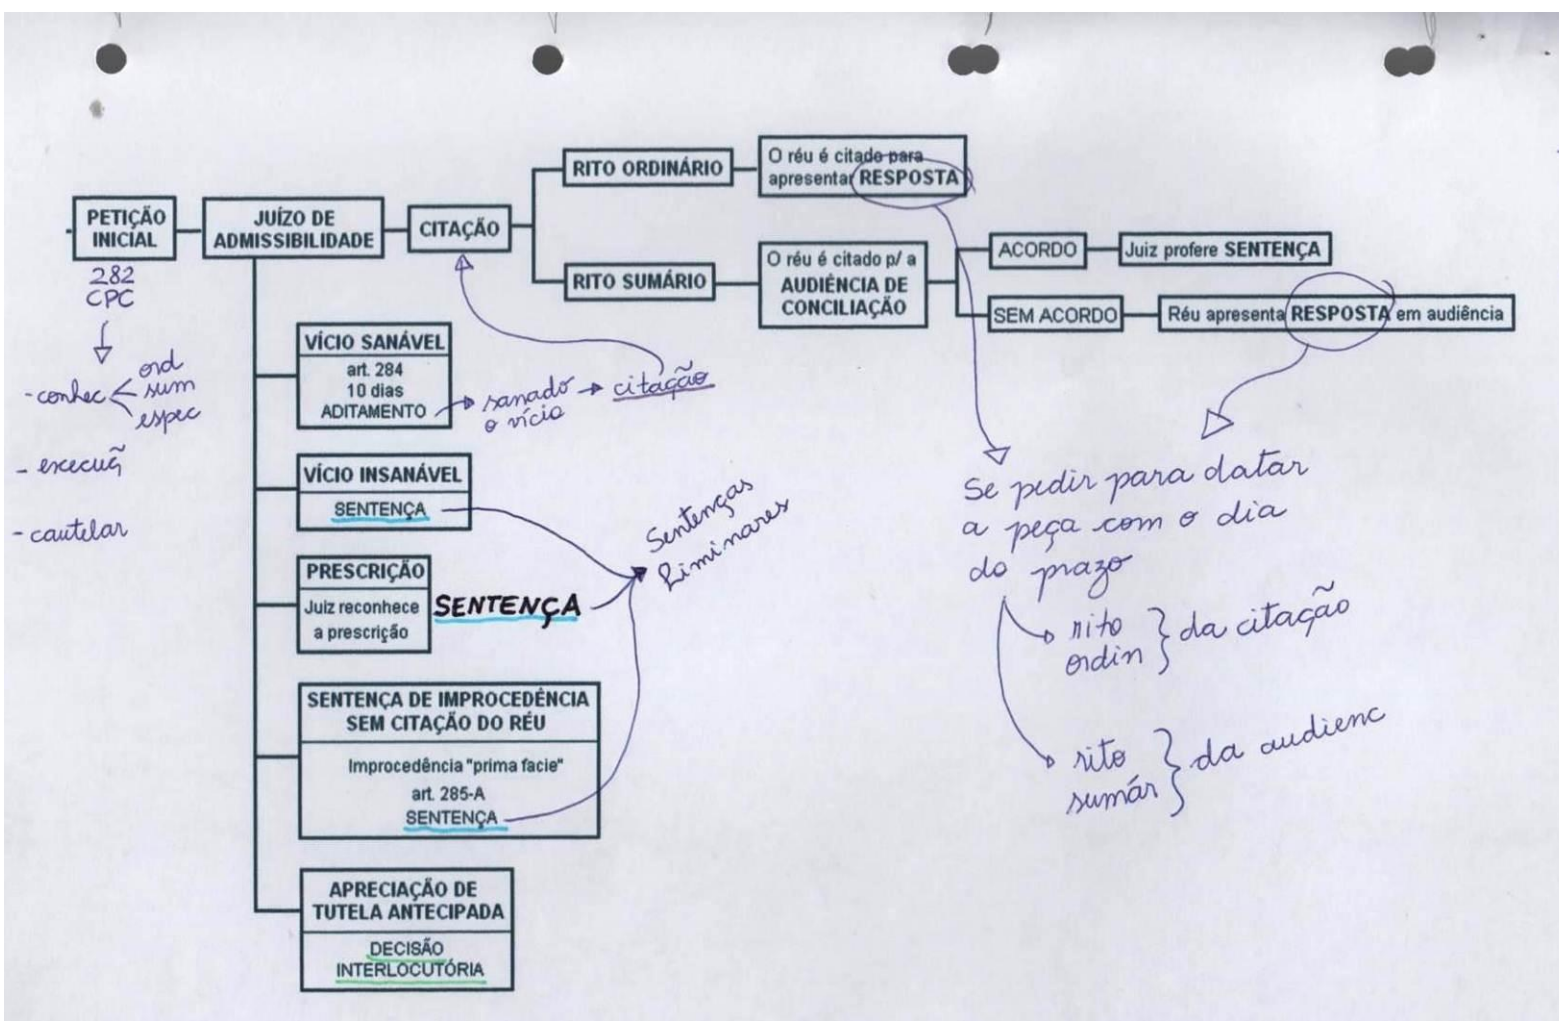 PETIÇÃO
INICIAL
282
CPC
- conhec
ord
sum
espec
- execuç̃
- cautelar
JUÍZO DE
ADMISSIBILIDADE
CITAÇÃO
RITO ORDINÁRIO
O réu é citado para
apresentar RESPOSTA
RITO SUMÁRIO
O réu é citado p/ a
AUDIÊNCIA DE
CONCILIAÇÃO
ACORDO
Juiz profere SENTENÇA
SEM ACORDO
Réu apresenta RESPOSTA em audiência
VÍCIO SANÁVEL
art. 284
10 dias
ADITAMENTO
sanado
o vício
citação
VÍCIO INSANÁVEL
SENTENÇA
PRESCRIÇÃO
Juiz reconhece
a prescrição
SENTENÇA
Sentenças
Liminares
SENTENÇA DE IMPROCEDÊNCIA
SEM CITAÇÃO DO RÉU
Improcedência "prima facie"
art. 285-A
SENTENÇA
APRECIAÇÃO DE
TUTELA ANTECIPADA
DECISÃO
INTERLOCUTÓRIA
Se pedir para datar
a peça com o dia
do prazo
rito
ordin } da citação
rito
sumár } da audienc